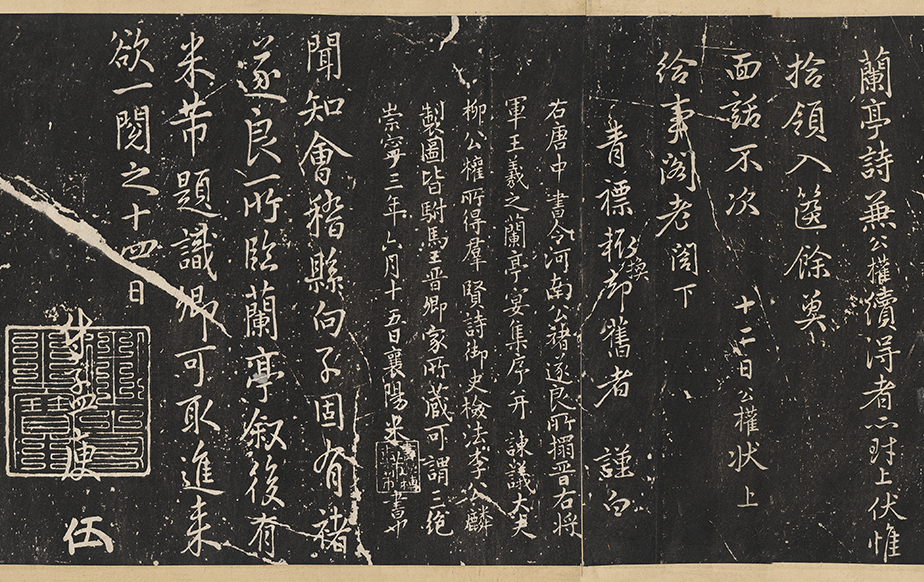 蘭亭詩兼公權續得者小對上伏惟
捨領入篋餘冀
面話不次 十二日公權狀上
給事閣老閣下
青標換却舊者 謹白
右唐中書令河南公褚遂良所搨晉右將
軍王羲之蘭亭宴集序并諫議大夫
柳公權所得羣賢詩御史檢法李公麟
製圖皆駙馬王晉卿家所蔵可謂三絕
崇寧三年六月十五日襄陽米芾書
聞知會稽縣向子固有褚
遂良所臨蘭亭叙後有
米芾題識卿可取進来
欲一閱之十四日
付孟庚